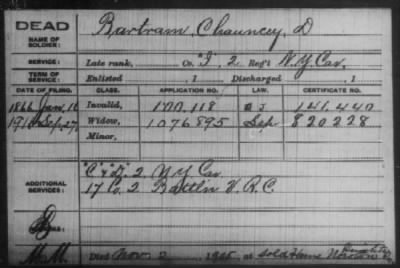 DEAD
NAME OF SOLDIER: Bartram, Chauncey, D
SERVICE: Late rank, Co. "I", 2 Reg't N.Y. Cav.
TERM OF SERVICE: Enlisted , 1 Discharged , 1
DATE OF FILING. CLASS. APPLICATION NO. LAW. CERTIFICATE NO.
1866 Jan, 16 Invalid, 100,118 141,440
Sep, 27 Widow, 1076895 820228
Minor,
ADDITIONAL SERVICES: "C" & 2 N Y Cav
17 Co. 2 Battl'n V. R. C.
Died Nov 2 1915, at Sold Home